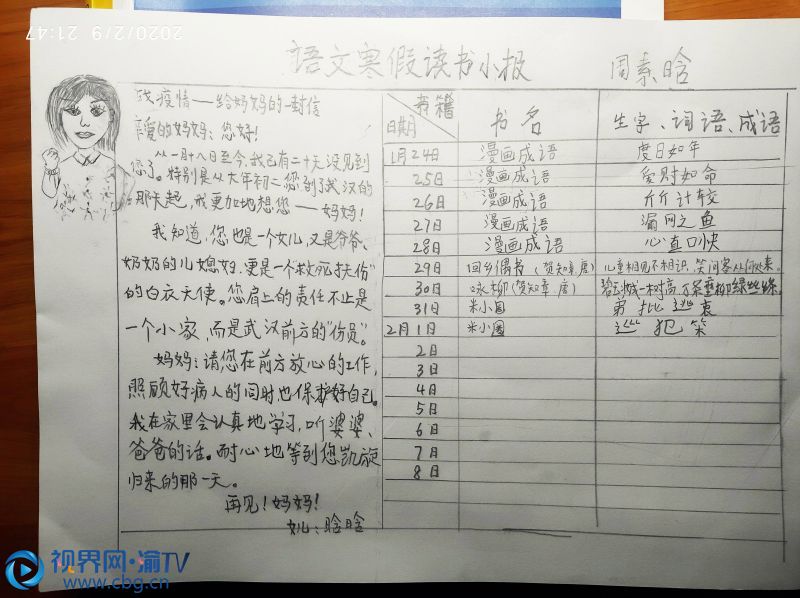 语文寒假读书小报 周素晗
致疫情——给妈妈的一封信
亲爱的妈妈：您好！
从一月十八日至今，我已有二十天没见到
您了。特别是从大年初二您到了武汉的
那天起，我更加地想您——妈妈！
我知道，您也是一个女儿，又是爷爷、
奶奶的儿媳妇，更是一个“救死扶伤”
的白衣天使。您肩上的责任不止是
一个小家，而是武汉前方的“伤员”。
妈妈：请您在前方放心的工作，
照顾好病人的同时也保护好自己。
我在家里会认真地学习，听婆婆、
爸爸的话。耐心地等到您凯旋
归来的那一天。
再见！妈妈！
女儿：晗晗
书籍
日期 书名 生字、词语、成语
1月24日 漫画成语 度日如年
25日 漫画成语 爱财如命
26日 漫画成语 斤斤计较
27日 漫画成语 漏网之鱼
28日 漫画成语 心直口快
29日 回乡偶书（贺知章 唐） 儿童相见不相识，笑问客从何处来。
30日 咏柳（贺知章 唐） 碧玉妆成一树高，万条垂下绿丝绦。
31日 米小圈
2月1日 米小圈 巡 犯 笨
2日
3日
4日
5日
6日
7日
8日
2020/2/9 21:47
视界网·渝TV
www.cbg.cn